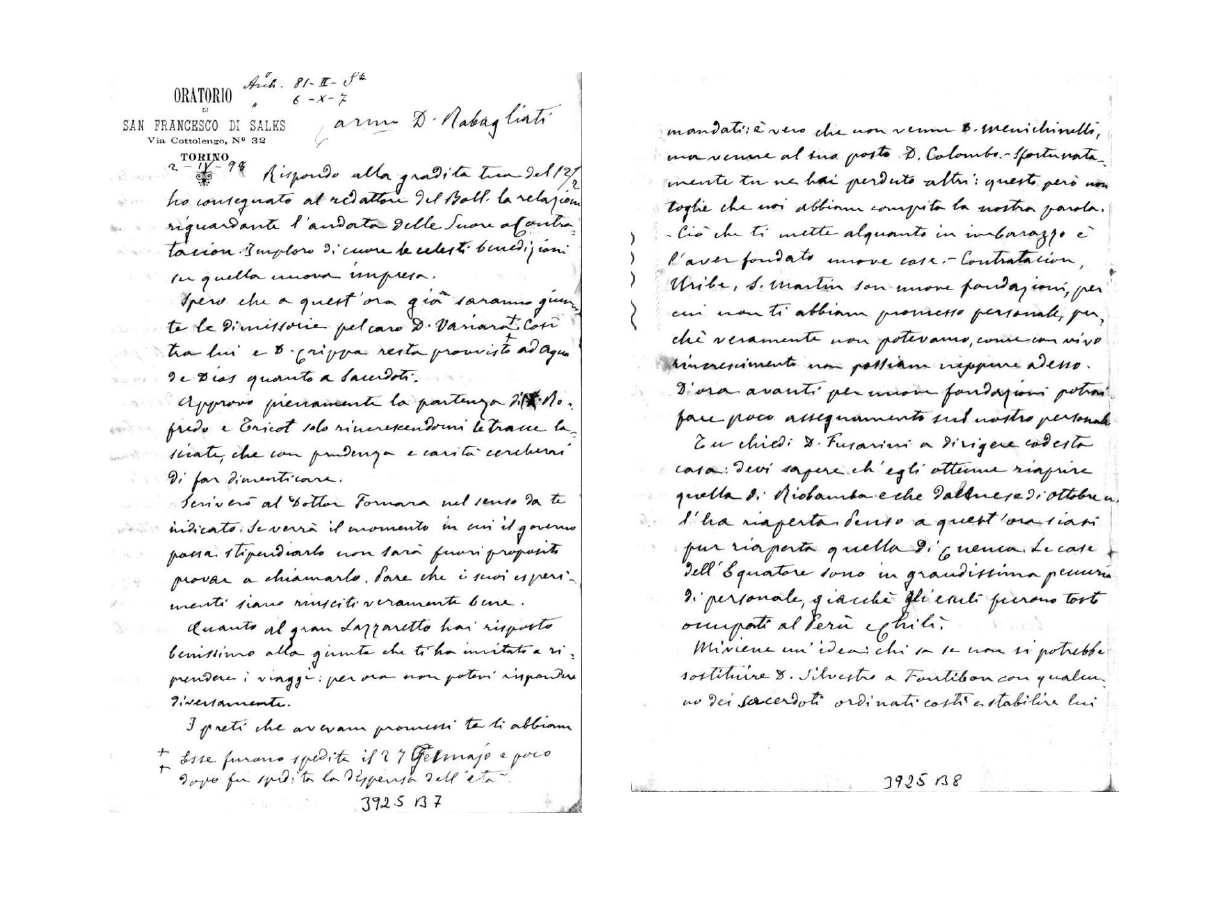 ORATORIO
DI
SAN FRANCESCO DI SALES
Via Cottolengo, Nº 32
TORINO
Arch. 81-II-
" 6-X-7
Carmo D. Rabagliati
2-IV-98 Rispondo alla gradita tua del 12/2
ho consegnato al redattore del Boll. la relazione
riguardante l'andata delle Suore a Contra-
tacion. Imploro di cuore le celesti benedizioni
su quella nuova impresa.
Spero che a quest'ora già saranno giun-
te le dimissorie pel caro D. Variara+ Così
tra lui e D. Crippa resta provvisto+ ad Agua
de Dios quanto a Sacerdoti.
Approvo pienamente la partenza di Ro-
fredo e Tricot solo rincrescendomi le tracce la-
sciate, che con prudenza e carità cercherai
di far dimenticare.
Scriverò al Dottor Fornara nel senso da te
indicato. Se verrà il momento in cui il governo
possa stipendiarlo non sarà fuori proposito
provar a chiamarlo. Pare che i suoi esperi-
menti siano riusciti veramente bene.
Quanto al gran Lazzaretto hai risposto
benissimo alla giunta che ti ha invitato a ri-
prendere i viaggi: per ora non potevi rispondere
diversamente.
I preti che avevam promessi te li abbiam
+ Esse furono spedite il 27 Gennajo e poco
+ dopo fu spedita la dispensa dell'età
3925 B7
mandati: è vero che non venne D. Menichinelli,
ma venne al suo posto D. Colombo. - Sfortunata-
mente tu ne hai perduto altri: questo però non
toglie che noi abbiam compita la nostra parola.
- Ciò che ti mette alquanto in imbarazzo è
l'aver fondato nuove case. - Contratacion,
Uribe, S. Martin son nuove fondazioni, per
cui non ti abbiam promesso personale, per-
chè veramente non potevamo, come con vivo
rincrescimento non possiam neppure adesso.
D'ora avanti per nuove fondazioni potrai
fare poco assegnamento sul nostro personale
Tu chiedi D. Fusarini a dirigere codesta
casa: devi sapere ch'egli ottenne riaprire
quella di Riobamba e che dal mese di ottobre
l'ha riaperta. Penso a quest'ora siasi
pur riaperta quella di Cuenca. Le case
dell'Equatore sono in grandissima penuria
di personale, giacchè gli esuli furono tosto
occupati al Perù e Chilì.
Mi viene un'idea: chi sa se non si potrebbe
sostituire D. Silvestro a Fontibon con qualcu-
no dei sacerdoti ordinati costì e stabilire lui
3925 B8